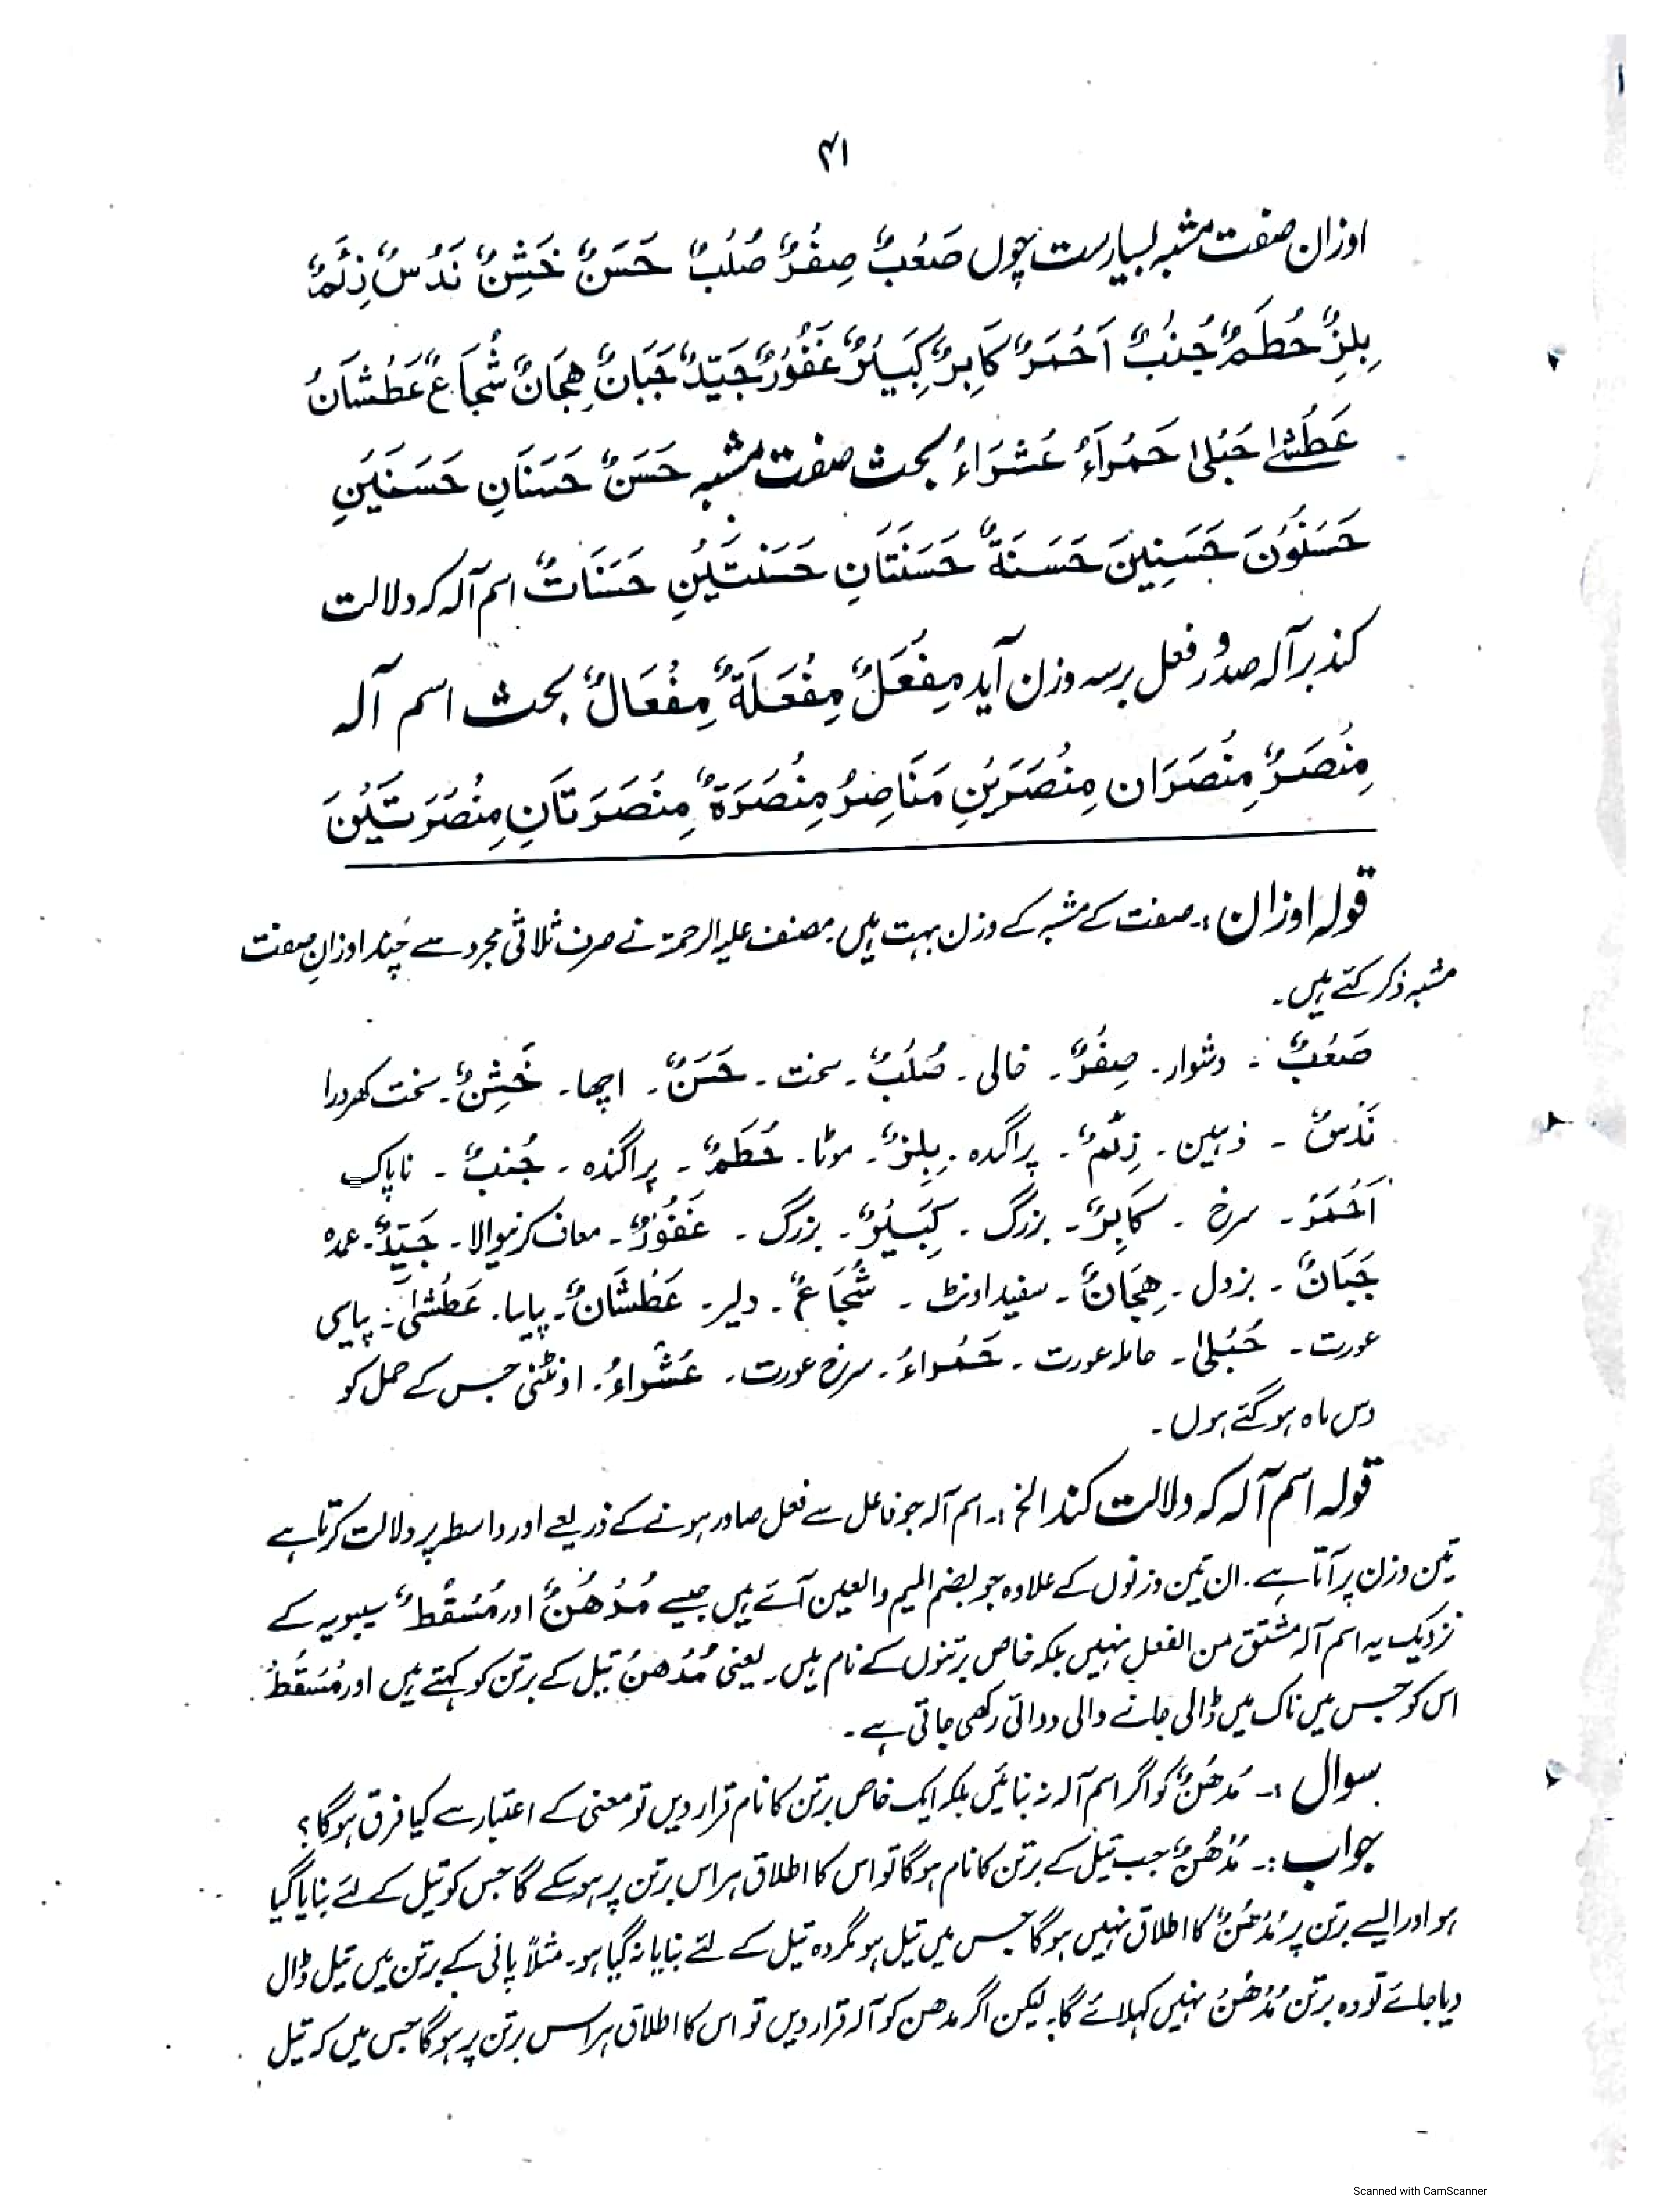 ۴۱
اوزان صفت مشبہ بسیارست چوں صَعْبٌ صِفْرٌ صُلْبٌ حَسَنٌ خَشِنٌ نَدُسٌ زِئَمٌ
بِلِزٌ حُطَمٌ جُنُبٌ اَحْمَرُ کَابِرٌ کَبِیْرٌ غَفُوْرٌ جَیِّدٌ جَبَانٌ هِجَانٌ شُجَاعٌ عَطْشَانُ
عَطْشٰی حُبْلیٰ حَمْرَآءُ عُشَرَاءُ بحث صفت مشبہ حَسَنٌ حَسَنَانِ حَسَنَیْنِ
حَسَنُوْنَ حَسَنِیْنَ حَسَنَةٌ حَسَنَتَانِ حَسَنَتَیْنِ حَسَنَاتٌ اسم آلہ کہ دلالت
کند بر آلہ صدور فعل بر سہ وزن آید مِفْعَلٌ مِفْعَلَةٌ مِفْعَالٌ بحث اسم آلہ
مِنْصَرٌ مِنْصَرَان مِنْصَرَیْنِ مَنَاصِرُ مِنْصَرَةٌ مِنْصَرَتَانِ مِنْصَرَتَیْنِ
قولہ اوزان :۔ صفت کے مشبہ کے وزن بہت ہیں۔ مصنف علیہ الرحمۃ نے صرف ثلاثی مجرد سے چند اوزانِ صفت
مشبہ ذکر کئے ہیں۔
صَعْبٌ ۔ دشوار۔ صِفْرٌ ۔ خالی ۔ صُلْبٌ ۔ سخت ۔ حَسَنٌ ۔ اچھا ۔ خَشِنٌ ۔ سخت کھردرا
نَدُسٌ ۔ ذہین ۔ زِئَمٌ ۔ پراگندہ ۔ بِلِزٌ ۔ موٹا ۔ حُطَمٌ ۔ پراگندہ ۔ جُنُبٌ ۔ ناپاک
اَحْمَرُ ۔ سرخ ۔ کَابِرٌ ۔ بزرگ ۔ کَبِیْرٌ ۔ بزرگ ۔ غَفُوْرٌ ۔ معاف کرنیوالا ۔ جَیِّدٌ ۔ عمدہ
جَبَانٌ ۔ بزدل ۔ هِجَانٌ ۔ سفید اونٹ ۔ شُجَاعٌ ۔ دلیر ۔ عَطْشَانٌ ۔ پیاسا ۔ عَطْشٰی ۔ پیاسی
عورت ۔ حُبْلیٰ ۔ حاملہ عورت ۔ حَمْراءُ ۔ سرخ عورت ۔ عُشَراءُ ۔ اونٹنی جس کے حمل کو
دس ماہ ہو گئے ہوں ۔
قولہ اسم آلہ کہ دلالت کند الخ :۔ اسم آلہ جو فاعل سے فعل صادر ہونے کے ذریعے اور واسطہ پر دلالت کرتا ہے
تین وزن پر آتا ہے ۔ ان تین وزنوں کے علاوہ جو بضم المیم والعین آئے ہیں جیسے مُدْهُنٌ اور مُسْقُطٌ سیبویہ کے
نزدیک یہ اسم آلہ مشتق من الفعل نہیں بلکہ خاص برتنوں کے نام ہیں۔ یعنی مُدْهُنُ تیل کے برتن کو کہتے ہیں اور مُسْقُطُ
اس کو جس میں ناک میں ڈالی جانے والی دوائی رکھی جاتی ہے ۔
سوال :۔ مُدْهُنٌ کو اگر اسم آلہ نہ بنائیں بلکہ ایک خاص برتن کا نام قرار دیں تو معنی کے اعتبار سے کیا فرق ہو گا ؟
جواب :۔ مُدْهُنٌ جب تیل کے برتن کا نام ہو گا تو اس کا اطلاق ہر اس برتن پر ہو سکے گا جس کو تیل کے لئے بنایا گیا
ہو اور ایسے برتن پر مُدْهُنٌ کا اطلاق نہیں ہو گا جس میں تیل ہو مگر وہ تیل کے لئے بنایا نہ گیا ہو۔ مثلاً پانی کے برتن میں تیل ڈال
دیا جائے تو وہ برتن مُدْهُنُ نہیں کہلائے گا۔ لیکن اگر مدھن کو آلہ قرار دیں تو اس کا اطلاق ہر اس برتن پر ہو گا جس میں کہ تیل
Scanned with CamScanner